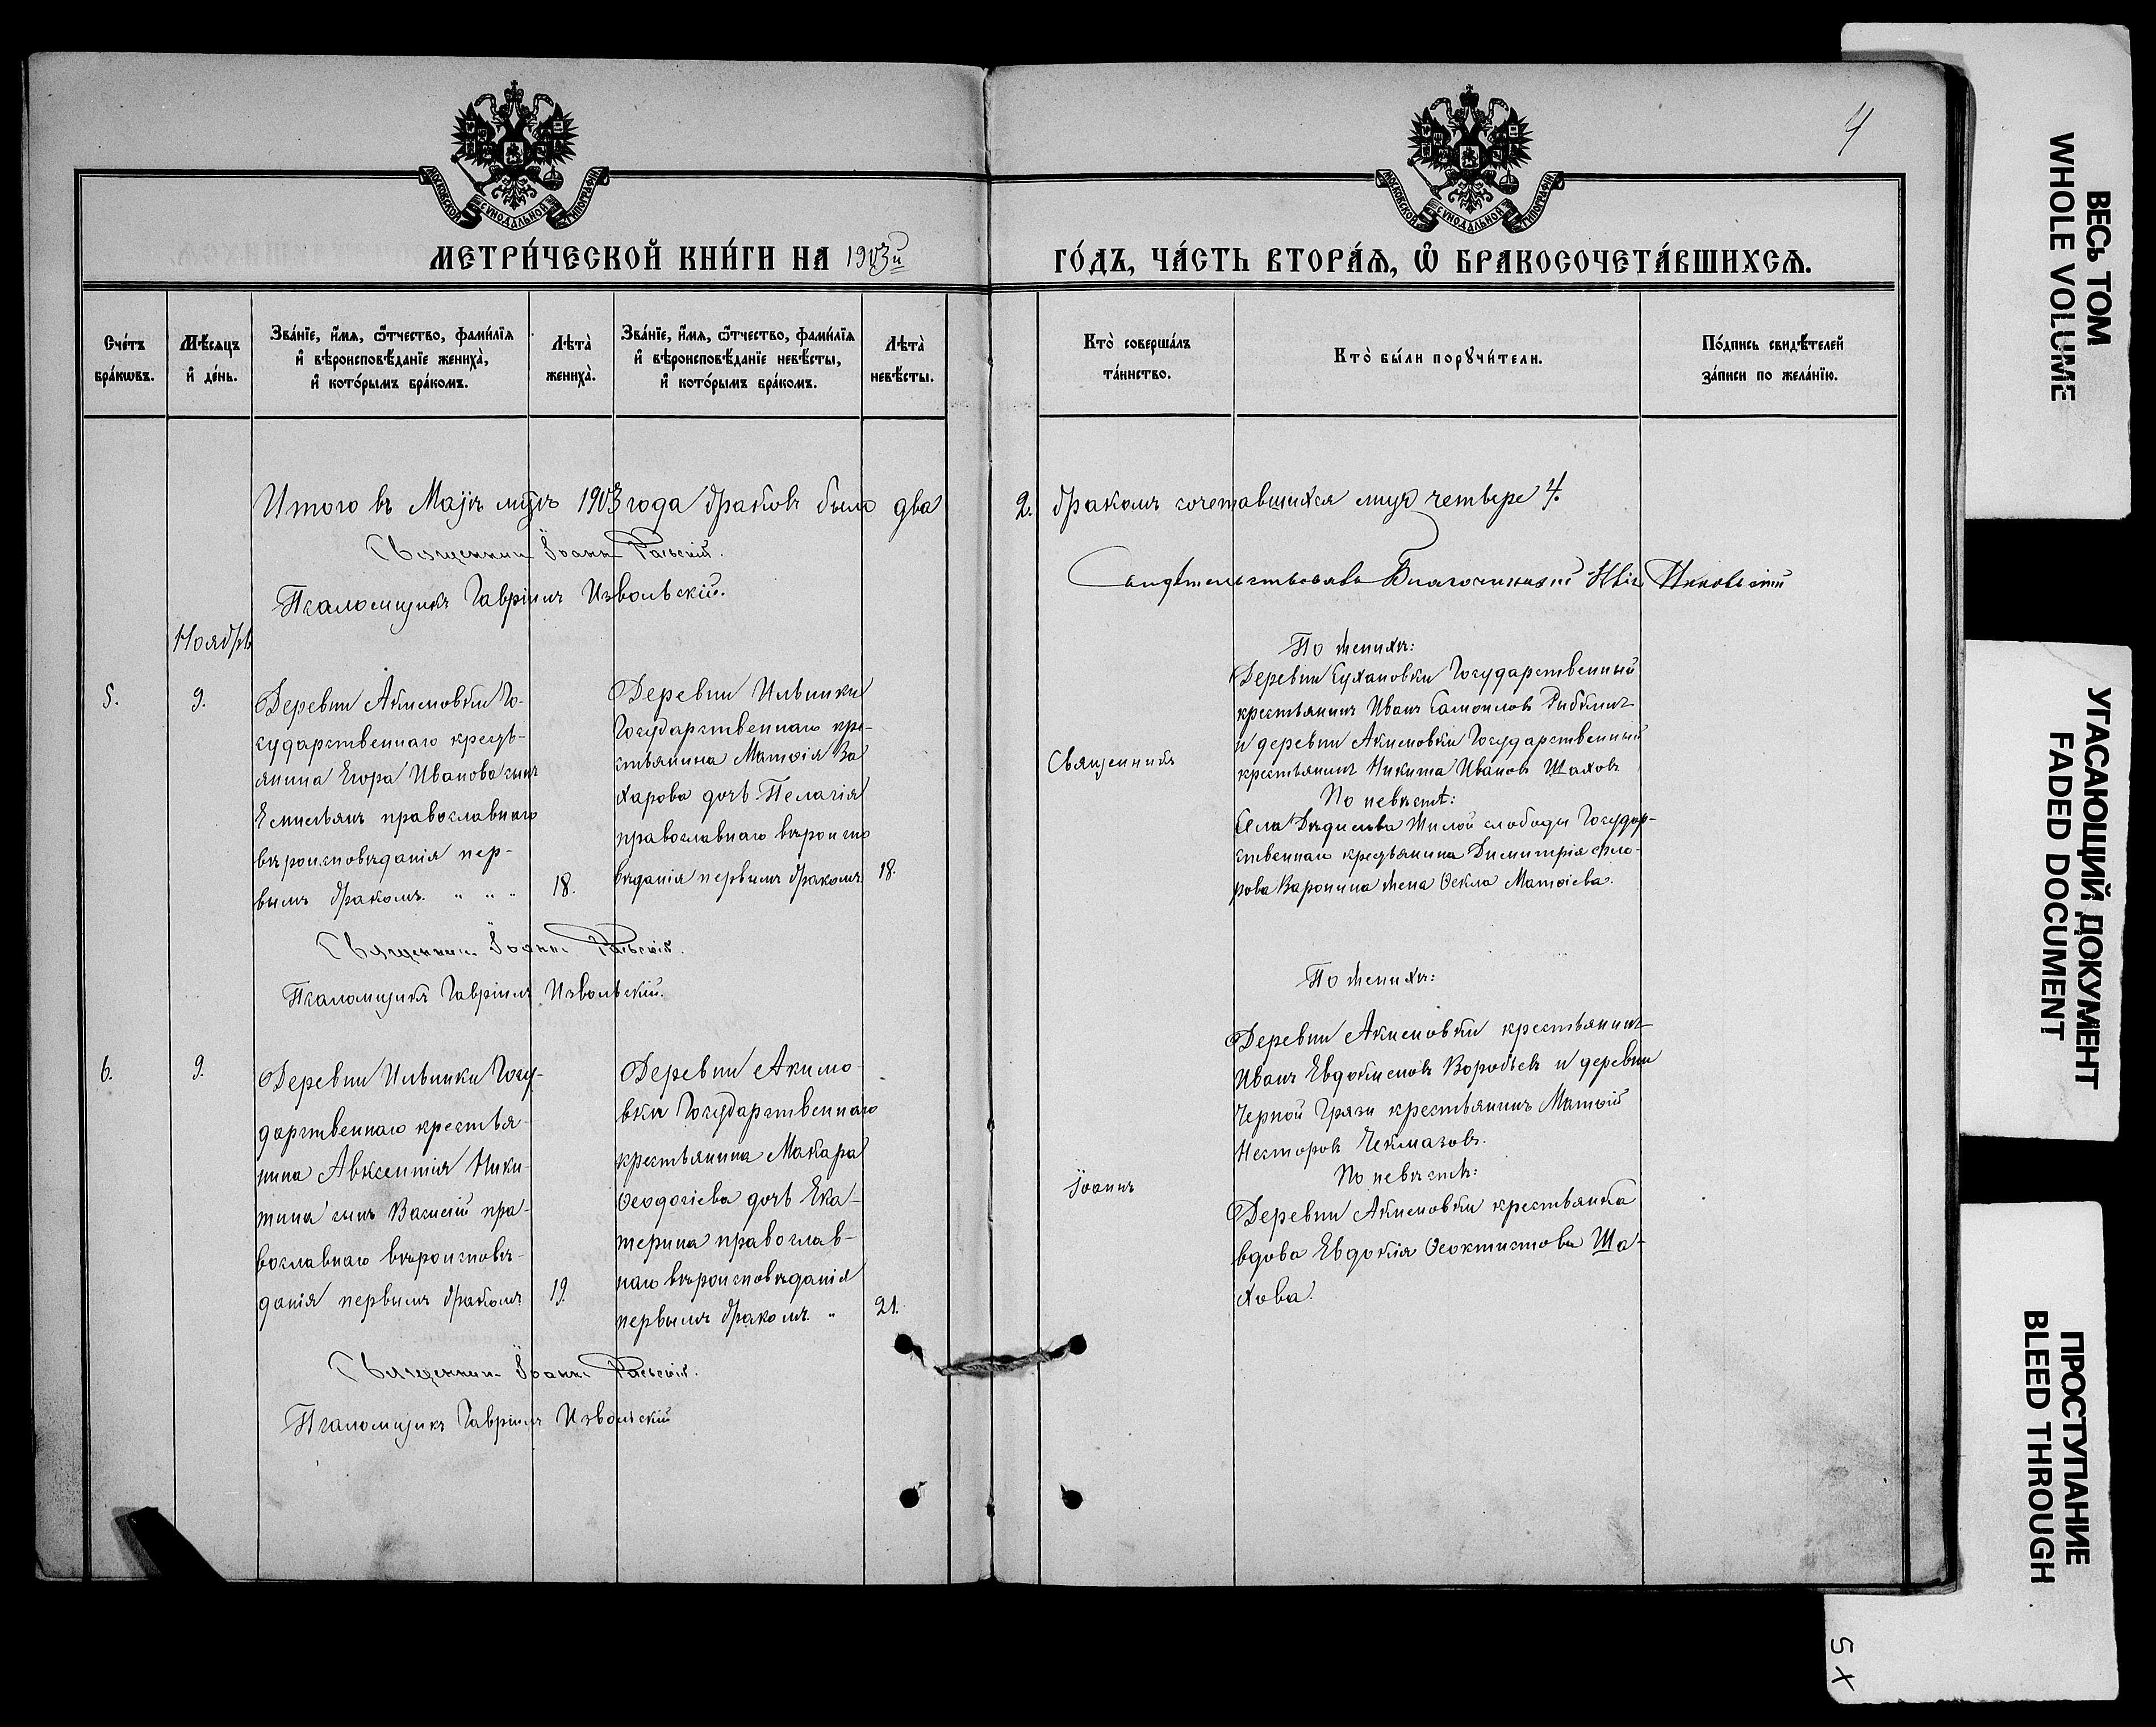 4
МОСКОВСКОЙ СѴНОДАЛЬНОЙ ТИПОГРАФІИ
МОСКОВСКОЙ СѴНОДАЛЬНОЙ ТИПОГРАФІИ
МЕТРИ́ЧЕСКОЙ КНИ́ГИ НА 1903й
ГО́ДЪ, ЧА́СТЬ ВТОРА́Ѧ, Ѽ БРАКОСОЧЕТА́ВШИХСѦ.
Сче́тъ
бра́кѡвъ.
Мѣ́сяцъ
и҆ де́нь.
Зва́нїе, и҆́мѧ, ѻ҆́тчество, фами́лїѧ
и҆ вѣроисповѣ́данїе жениха̀,
и҆ кото́рымъ бра́комъ.
Лѣта̀
жениха̀.
Зва́нїе, и҆́мѧ, ѻ҆́тчество, фами́лїѧ
и҆ вѣроисповѣ́данїе невѣ́сты,
и҆ кото́рымъ бра́комъ.
Лѣта̀
невѣ́сты.
Кто̀ соверша́лъ
та́инство.
Кто̀ бы́ли порꙋчи́тели.
По́дпись свидѣ́телей
за́писи по жела́нїю.
Итого въ Маѣ мцѣ 1903 года браковъ было два
2. бракомъ сочетавшихся лицъ четверо 4.
Священник Іоанн
Псаломщикъ Гавріилъ Извольскій.
Свидѣтельствовалъ Благочинный
Ноябрь
5.
9.
Деревни Акимовки Го-
сударственнаго кресть-
янина Егора Иванова сынъ
Емиліянъ православнаго
вѣроисповѣданія пер-
вымъ бракомъ. " " "
18.
Деревни Ильинки
Государственнаго кре-
стьянина Матѳія За
харова дочь Пелагія
православнаго вѣроиспо
вѣданія первымъ бракомъ.
18.
Священникъ
По женихѣ:
Деревни Сухановки Государственный
крестьянинъ Иванъ Самоиловъ
и деревни Акимовки Государственный
крестьянинъ Никита Ивановъ Шаховъ
По невѣстѣ:
Села Дѣдилова Жилой слободы Государ-
ственнаго крестьянина Димитрія Фло-
рова Варонина жена Ѳекла Матѳіева.
Священник Іоанн
Псаломщикъ Гавріилъ Извольскій.
6.
9.
Деревни Ильинки Госу-
дарственнаго крестья-
нина Авксентія Ники-
тина сынъ Василій пра-
вославнаго вѣроисповѣ-
данія первымъ бракомъ
19.
Деревни Акимо-
вки Государственнаго
крестьянина Макара
Ѳеодосіева дочь Ека-
терина православ-
наго вѣроисповѣданія
первымъ бракомъ. "
21.
Іоаннъ
По женихѣ:
Деревни Акимовки крестьянинъ
Иванъ Евдокимовъ Воробьевъ и деревни
Черной Грязи крестьянинъ Матѳій
Несторовъ Чекмазовъ.
По невѣстѣ:
Деревни Акимовки крестьянка
вдова Евдокія Ѳеоктистова Ша-
хова.
Священник Іоанн
Псаломщикъ Гавріилъ Извольскій
ВЕСЬ ТОМ
WHOLE VOLUME
УГАСАЮЩИЙ ДОКУМЕНТ
FADED DOCUMENT
ПРОСТУПАНИЕ
BLEED THROUGH
5X